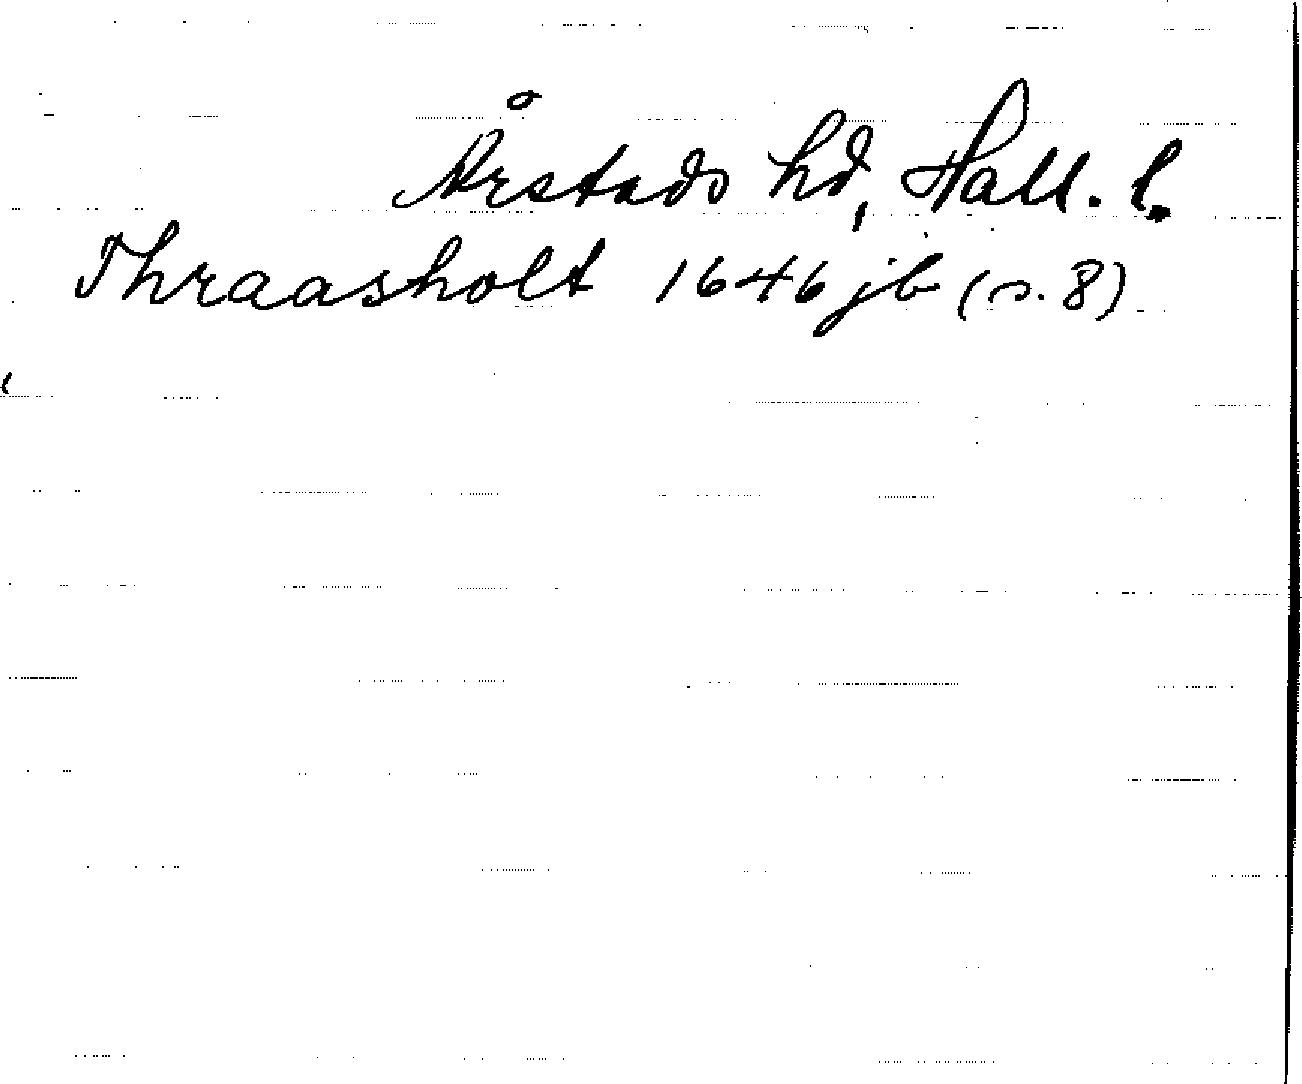 Årstads hd, Hall. l.
Thraasholt 1646 jb (s. 8)